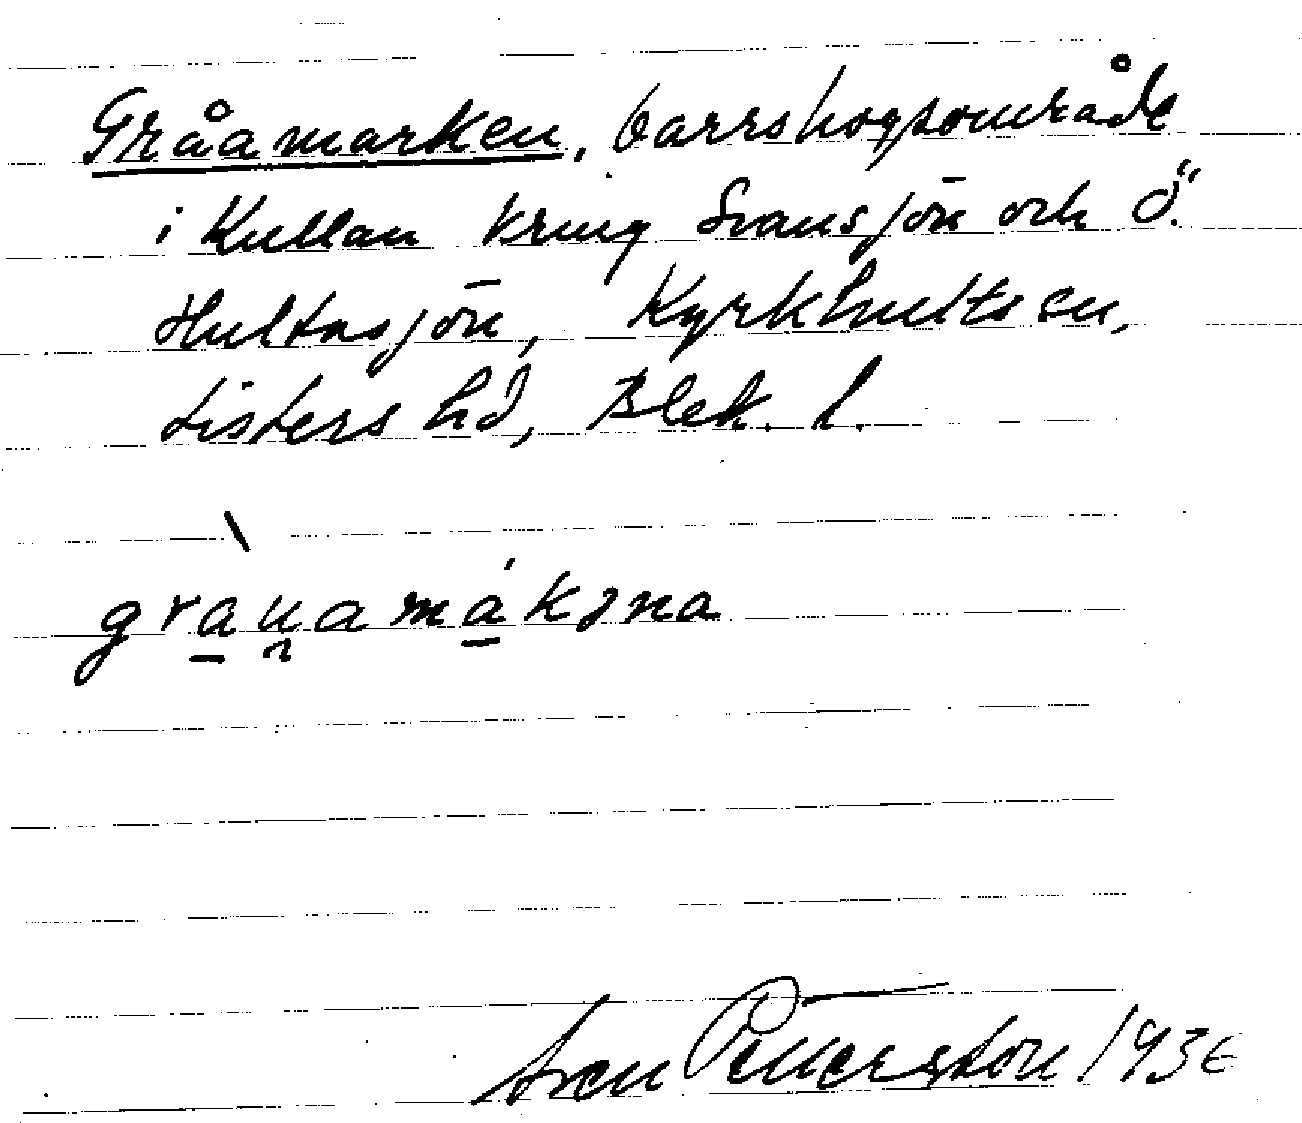 Gråamarken, barrskogsområde
i Kullan kring Svansjön och Ö.
Hultasjön, Kyrkhults sn,
Listers hd, Blek. l.
Sven Pettersson 1936